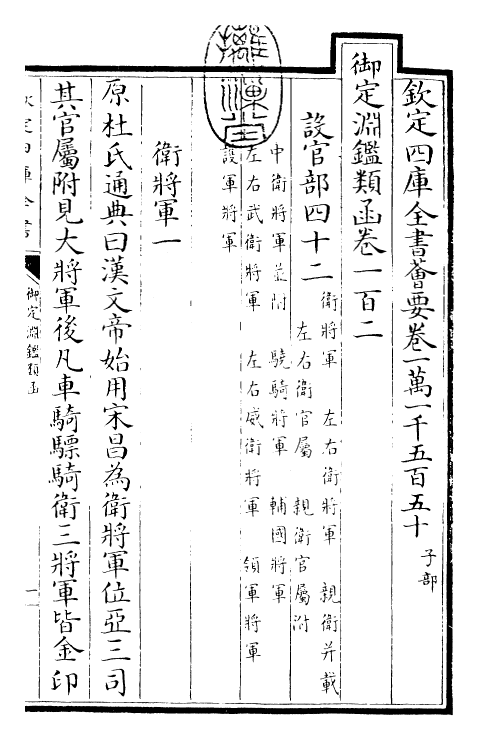 欽定四庫全書薈要卷一萬一千五百五十 子部
御定淵鑑類函卷一百二
設官部四十二
衛將軍 左右衛將軍 親衛并載
左右衛官屬 親衛官屬附
中衛將軍並附 驍騎將軍 輔國將軍
左右武衛將軍 左右威衛將軍 領軍將軍
護軍將軍
衛將軍一
原杜氏通典曰漢文帝始用宋昌為衛將軍位亞三司
其官屬附見大將軍後凡車騎驃騎衛三將軍皆金印
欽定四庫全書
御定淵鑑類函
一